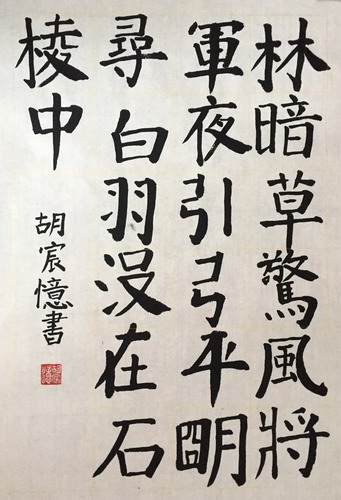 林暗草驚風將
軍夜引弓平明
尋白羽沒在石
棱中
胡宸憶書